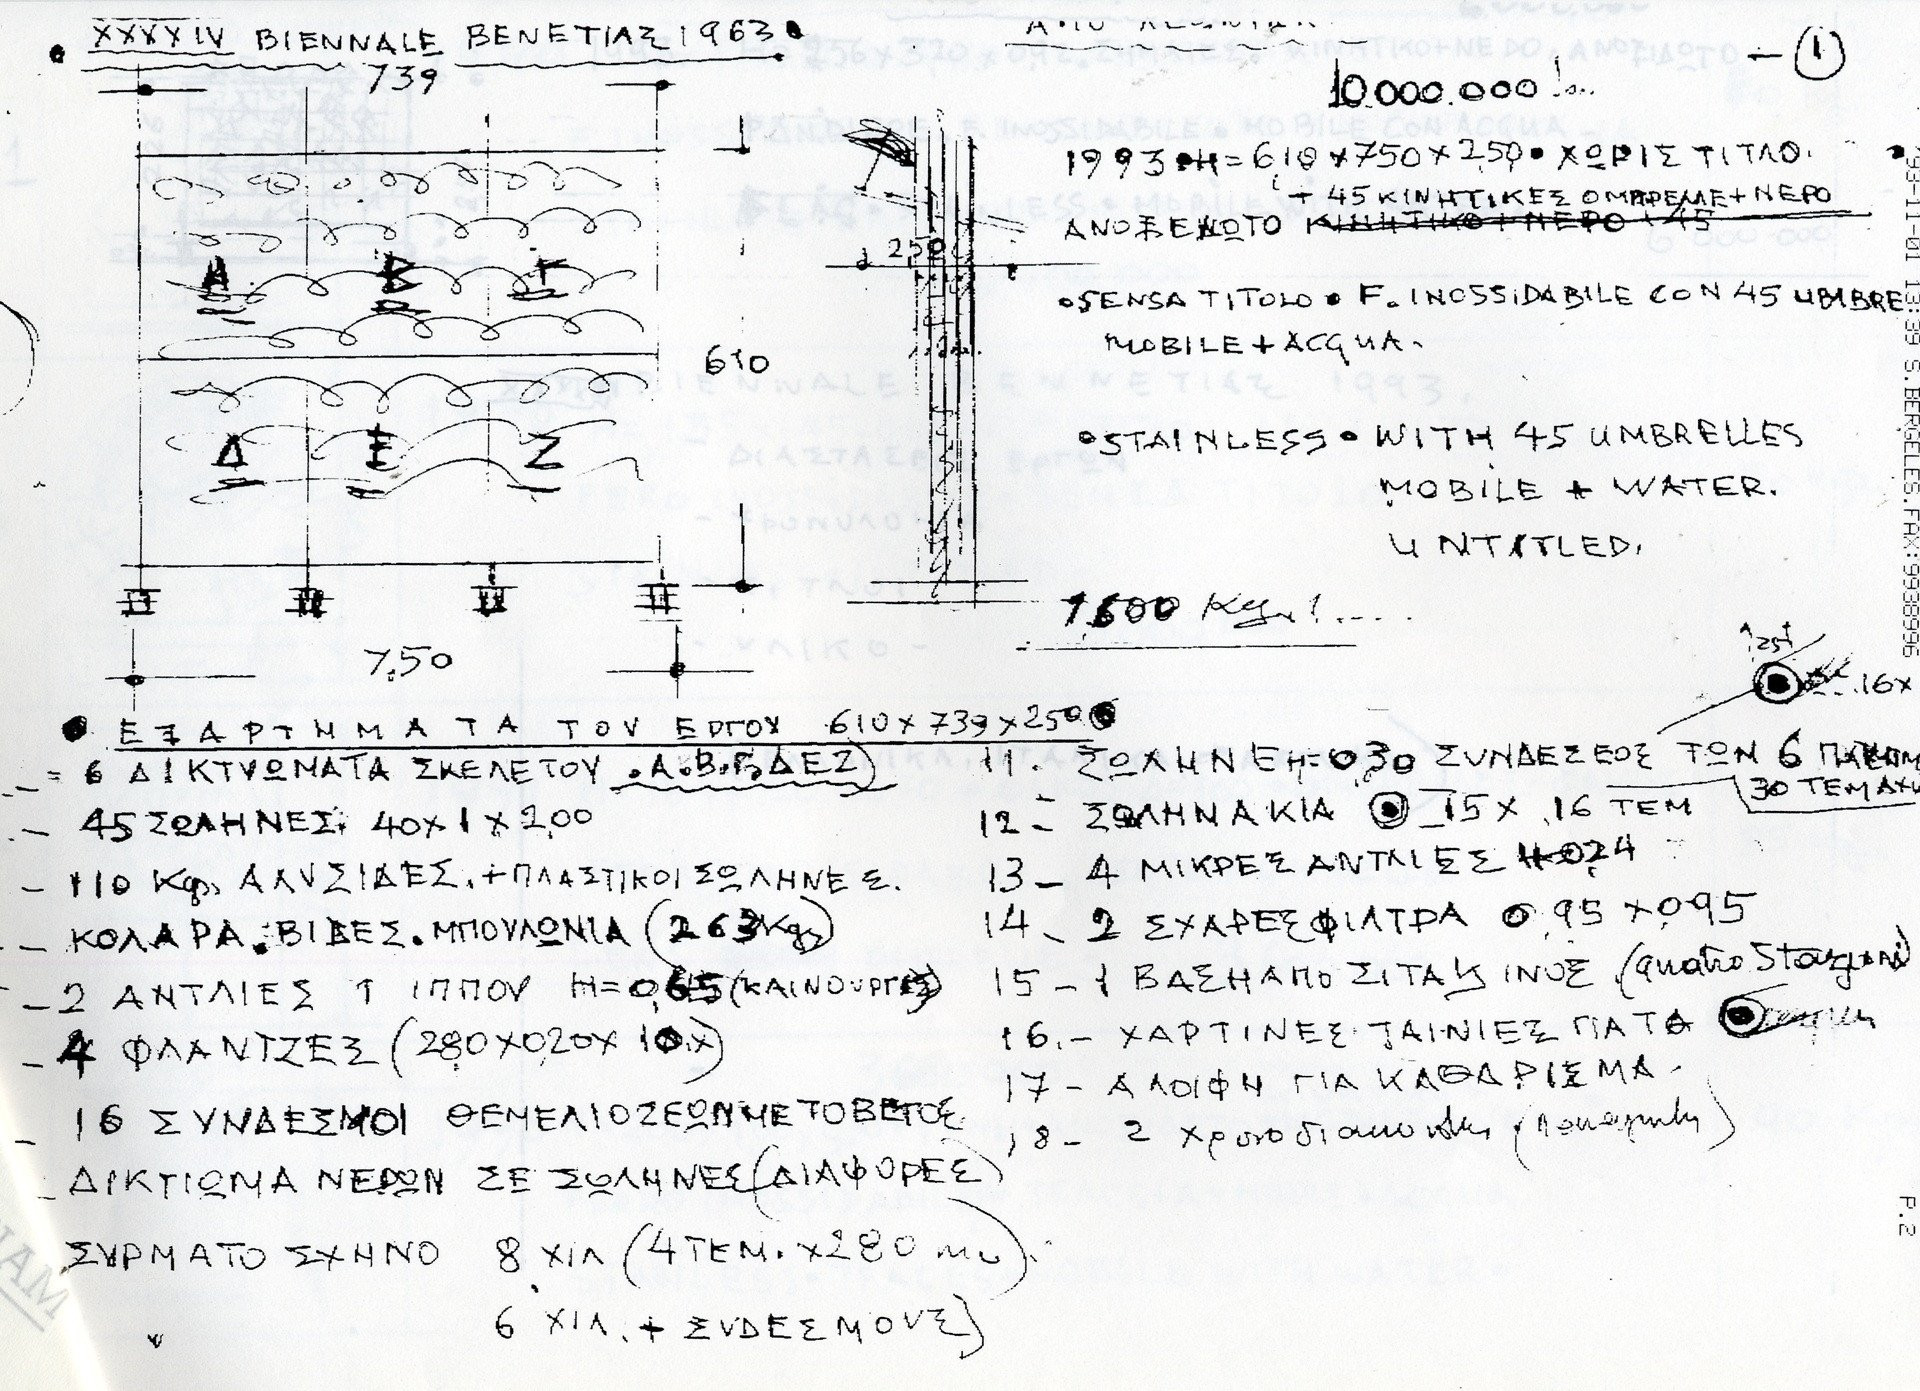 XXXXIV BIENNALE ΒΕΝΕΤΙΑΣ 1963
— 1
739
10.000.000
1993 • H = 610 x 750 x 250 • ΧΩΡΙΣ ΤΙΤΛΟ.
+ 45 ΚΙΝΗΤΙΚΕΣ ΟΜΠΡΕΛΕ + ΝΕΡΟ
ΑΝΟΞΕΙΔΩΤΟ ΚΙΝΗΤΙΚΟ + ΝΕΡΟ + 45
250
Α Β Γ
• SENSA TITOLO • F. INOSSIDABILE CON 45 UMBRE
MOBILE + ACQUA.
610
Δ Ε Ζ
• STAINLESS • WITH 45 UMBRELLES
MOBILE + WATER.
UNTITLED.
1.600 Kg.!....
7,50
25
16x
• ΕΞΑΡΤΗΜΑΤΑ ΤΟΥ ΕΡΓΟΥ 610 x 739 x 250 •
= 6 ΔΙΚΤΥΩΜΑΤΑ ΣΚΕΛΕΤΟΥ .Α.Β.Γ.ΔΕΖ)
— 45 ΣΩΛΗΝΕΣ. 40 x 1 x 2,00
— 110 Kg. ΑΛΥΣΙΔΕΣ. + ΠΛΑΣΤΙΚΟΙ ΣΩΛΗΝΕΣ.
— ΚΟΛΑΡΑ. ΒΙΔΕΣ. ΜΠΟΥΛΩΝΙΑ (263 Kg)
— 2 ΑΝΤΛΙΕΣ 1 ΙΠΠΟΥ H = 0,65 (ΚΑΙΝΟΥΡΓΙΕΣ)
— 4 ΦΛΑΝΤΖΕΣ (2,80 x 0,20 x 10.x)
— 16 ΣΥΝΔΕΣΜΟΙ ΘΕΜΕΛΙΟΣΕΩΝ ΜΕ ΤΟ ΒΕΤΟΣ
— ΔΙΚΤΙΩΜΑ ΝΕΡΩΝ ΣΕ ΣΩΛΗΝΕΣ (ΔΙΑΦΟΡΕΣ)
ΣΥΡΜΑΤΟΣΧΗΝΟ 8 ΧΙΛ (4 ΤΕΜ. x 280 m).
6 ΧΙΛ. + ΣΥΔΕΣΜΟΥΣ)
11. ΣΩΛΗΝΕ H = 0,30 ΣΥΝΔΕΣΕΟΣ ΤΩΝ 6
30 ΤΕΜΑΧ
12 — ΣΩΛΗΝΑΚΙΑ 15 x 16 ΤΕΜ
13 — 4 ΜΙΚΡΕΣ ΑΝΤΛΙΕΣ H 0,24
14 — 2 ΣΧΑΡΕΣ ΦΙΛΤΡΑ 0,95 x 0,95
15 — 1 ΒΑΣΗ ΑΠΟ ΣΙΤΑΚΙΝΟΣ (quatro Stagioni)
16. — ΧΑΡΤΙΝΕΣ ΤΑΙΝΙΕΣ ΓΙΑ ΤΑ
17 — ΑΛΟΙΦΗ ΓΙΑ ΚΑΘΑΡΙΣΜΑ.
18 — 2 χρονοδιακόπτες
'93-11-01 13:39 S.BERGELES.FAX:9938996
P.2